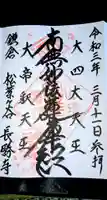 令和三年三月十一日参拝
大四太天王
南無妙法蓮華経
大帝釈天王
鎌倉 松葉ヶ谷 長勝寺